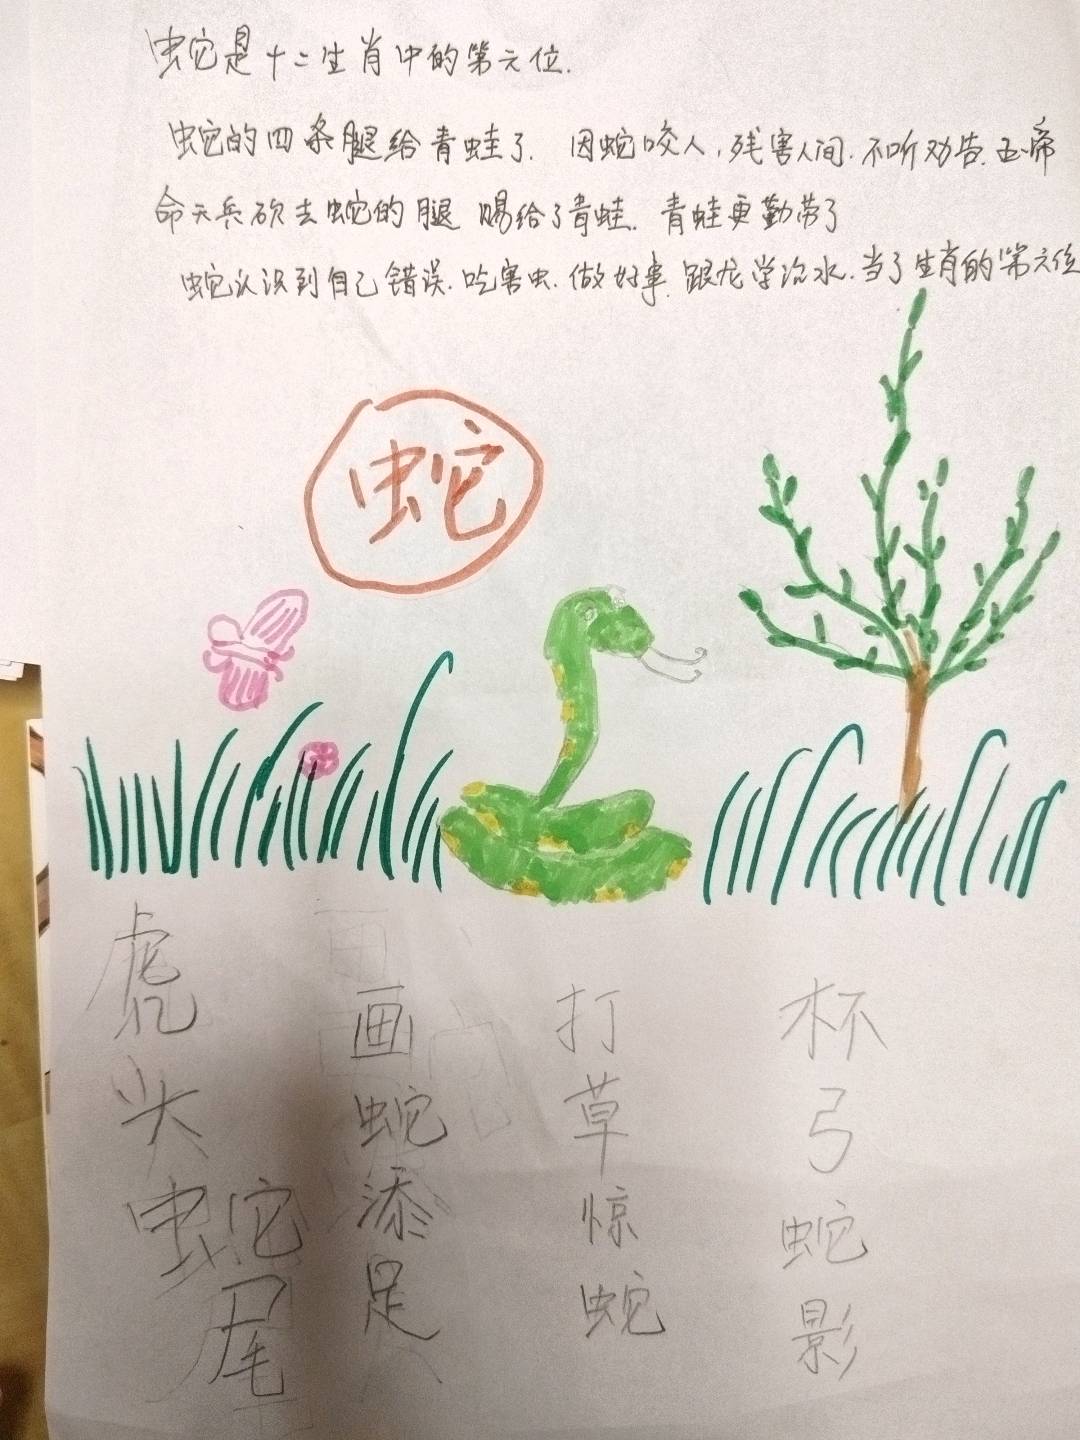 蛇是十二生肖中的第六位.
蛇的四条腿给青蛙了. 因蛇咬人,残害人间.不听劝告.玉帝
命天兵砍去蛇的腿 赐给了青蛙. 青蛙更勤劳了
蛇认识到自己错误.吃害虫.做好事.跟龙学治水.当了生肖的第六位
蛇
虎头蛇尾
画蛇添足
打草惊蛇
杯弓蛇影